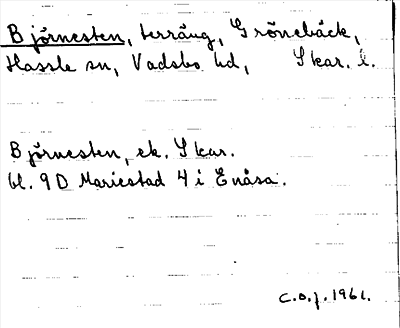 Björnesten, terräng, Grönebäck,
Hassle sn, Vadsbo hd, Skar. l.
Björnesten, ek. Skar.
bl. 9D Mariestad 4 i Enåsa.
C.O.J. 1961.